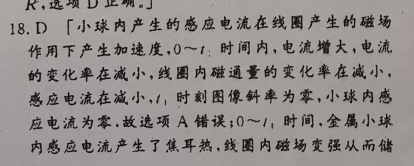 R,选项 D 正确。]
18. D [小球内产生的感应电流在线圈产生的磁场
作用下产生加速度,0～t₁ 时间内,电流增大,电流
的变化率在减小,线圈内磁通量的变化率在减小,
感应电流在减小,t₁ 时刻图像斜率为零,小球内感
应电流为零.故选项 A 错误;0～t₁ 时间,金属小球
内感应电流产生了焦耳热,线圈内磁场变强从而储